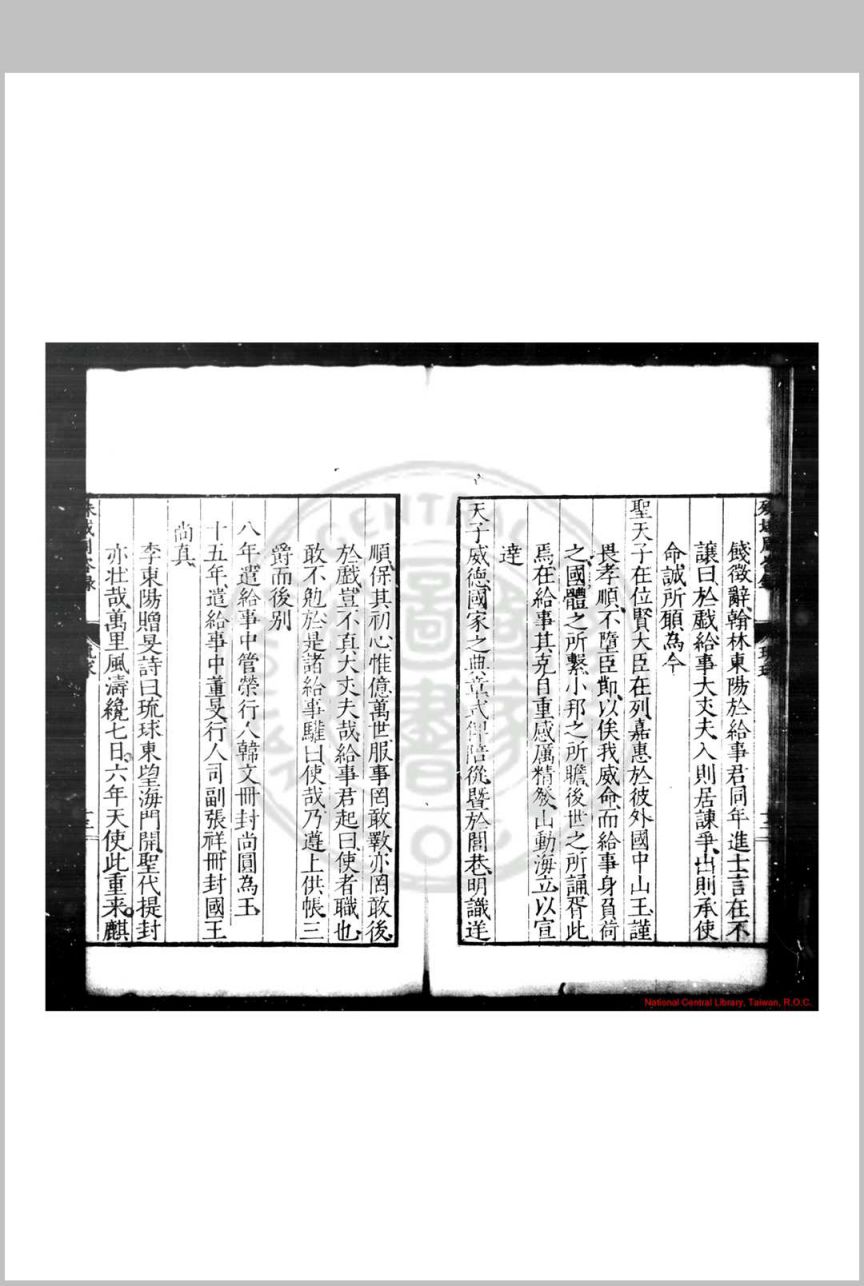 餞徵辭翰林東陽於給事君同年進士言在不
讓曰於戲給事大丈夫入則居諫爭出則承使
命誠所願為今
聖天子在位賢大臣在列嘉惠於彼外國中山王謹
畏孝順不墮臣節以俟我威命而給事身負荷
之國體之所繫小邦之所瞻後世之所誦胥此
焉在給事其克自重感厲精發山動海立以宣
達
天子威德國家之典章式俾陪從暨於閭巷明識逆
順保其初心惟億萬世服事罔敢斁亦罔敢後
於戲豈不真大丈夫哉給事君起曰使者職也
敢不勉於是諸給事驩曰使哉乃遵上供帳三
爵而後別
八年遣給事中管榮行人韓文冊封尚圓為王
十五年遣給事中董旻行人司副張祥冊封國王
尚真
李東陽贈旻詩曰琉球東望海門開聖代提封
亦壯哉萬里風濤纔七日六年天使此重来麒
殊域周咨錄
National Central Library, Taiwan, R.O.C.